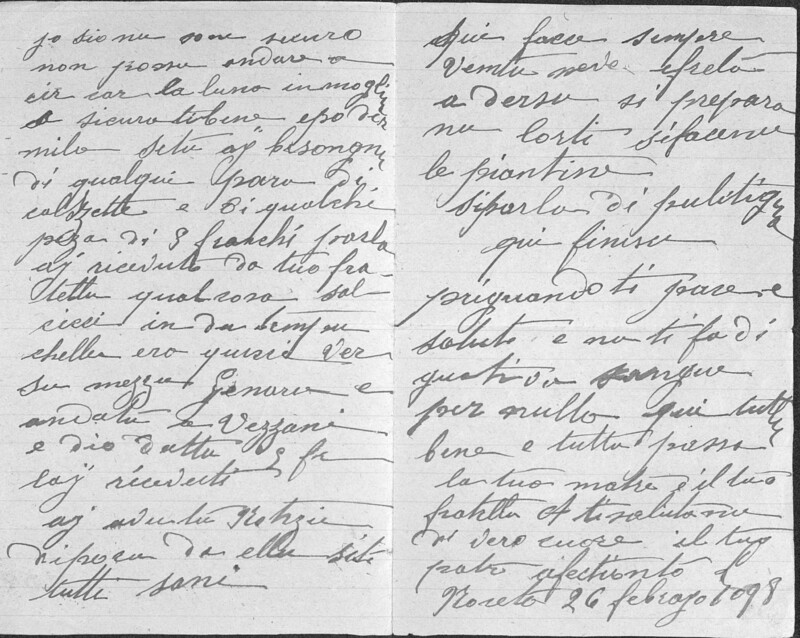 jo sionu son securo
non possu andare a
cir car la luna in moglie
sicuro tobene epodir
milo setu aÿ besongnu
di qualqui paro di
calzette e di qualchi
peza di 5 franchi parla
aÿ ricevuto da tuo fra-
tellu qualcosa sal-
cicci in da tempu
chellu ero quisi ver
su mezzu Genaru e
andatu a Vezzani
e dio dattu 5 fr
laÿ ricevuti
aÿ avutu Notizie
dipoca da ellu siti
tutti sani
Qui face sempre
Ventu neve efreto
adersu si prepara
nu lorti sifacenu
le piantine
siparla di pulitiqua
qui finiscu
quando ti pare e
saluti e nu ti fa di
sangue
per nullo qui tutti
bene e tuttu passa
la tuo matre è il tuo
fratellu A tisalutanu
di vero cuore il tuo
patre afectionto
Noceto 26 febrajo 1898